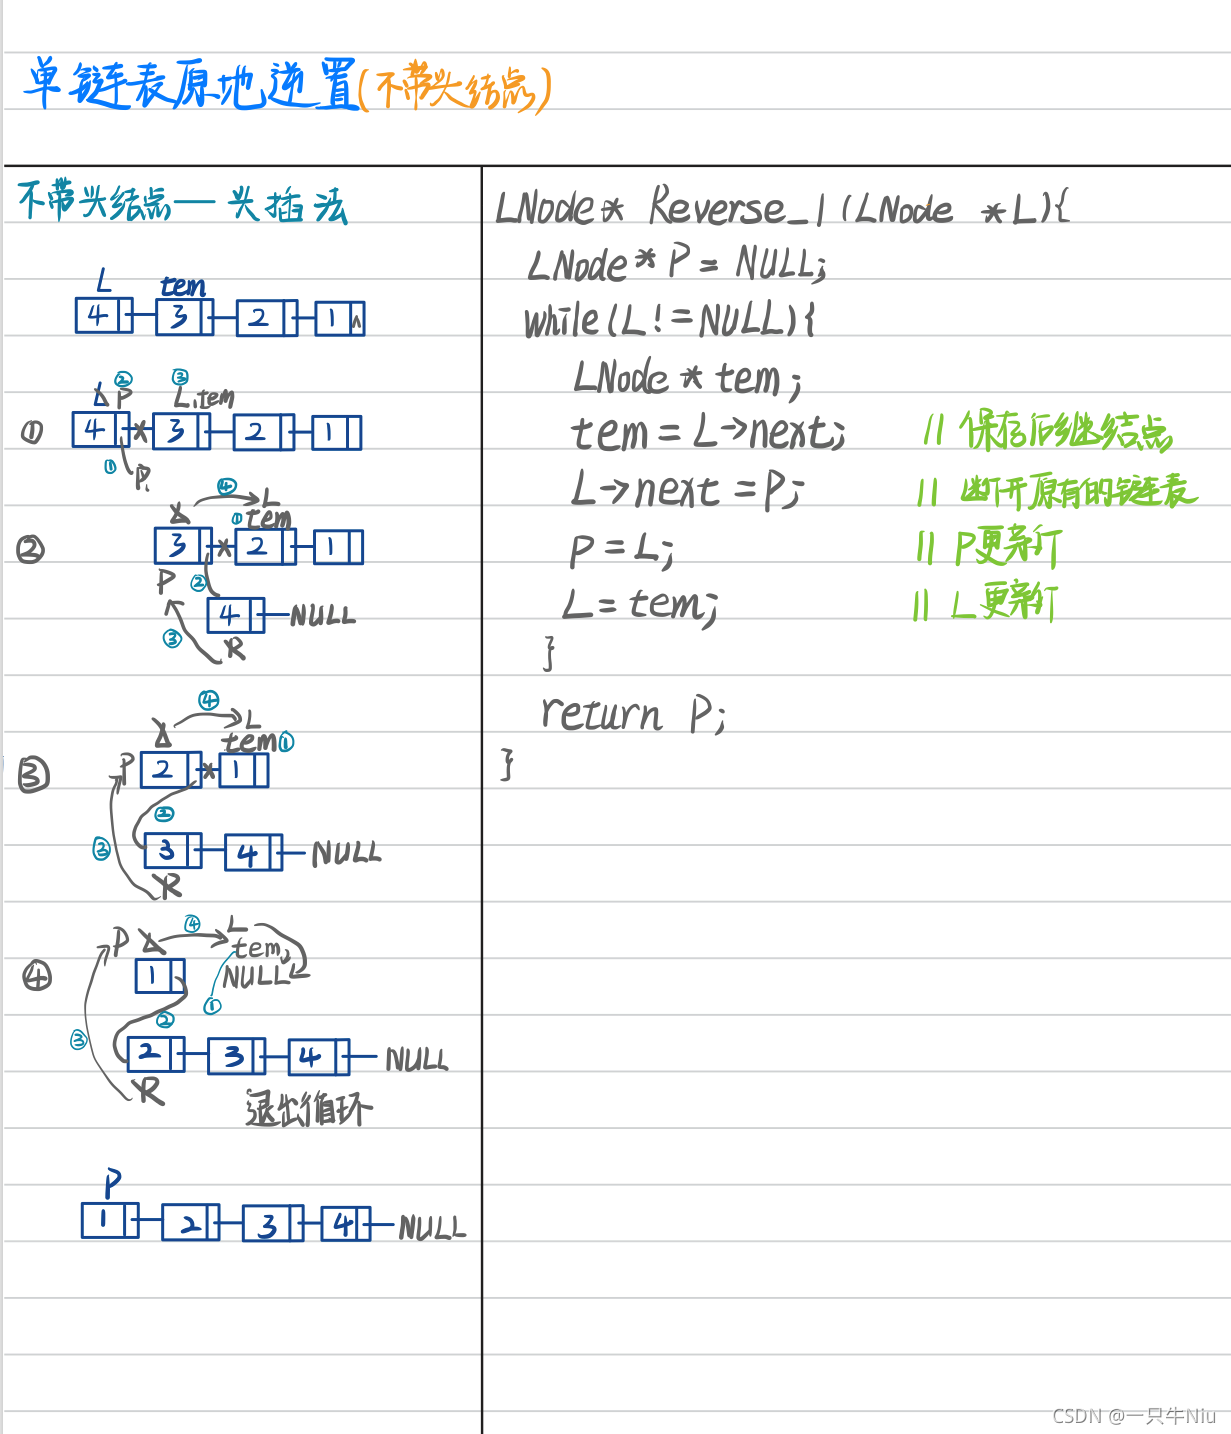 单链表原地逆置(不带头结点)
不带头结点——头插法
L tem
4 3 2 1 ^
② ③
L P L,tem
① 4 3 2 1
① P
④ L
① tem
② 3 2 1
P ②
4 NULL
③ P
④ L
tem ①
③ P 2 1
②
③ 3 4 NULL
P
④ L
P L tem
④ 1 NULL
② ①
③ 2 3 4 NULL
P
退出循环
P
1 2 3 4 NULL
LNode* Reverse_1(LNode *L){
LNode* P = NULL;
while(L!=NULL){
LNode * tem;
tem = L->next; // 保存后继结点
L->next = P; // 断开原有的链表
P = L; // P更新
L = tem; // L更新
}
return P;
}
CSDN @一只牛Niu